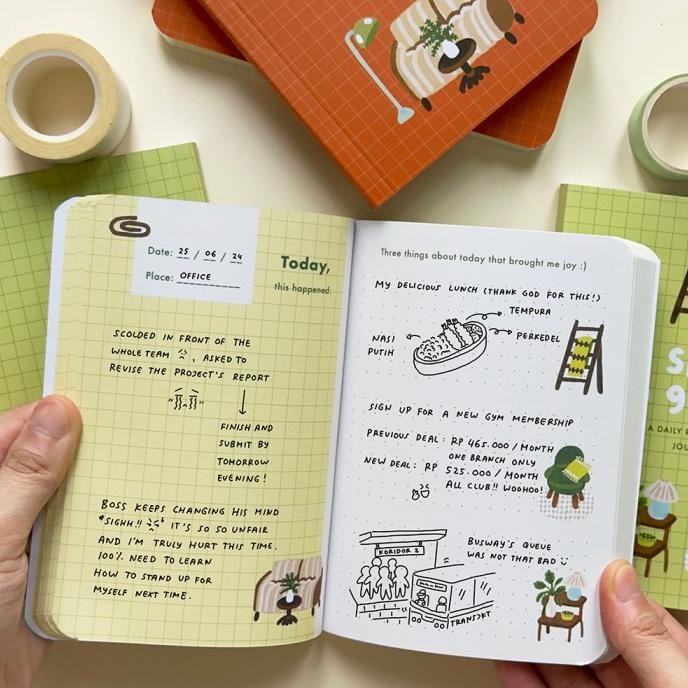 Date: 25 / 06 / 24
Place: OFFICE
Today,
this happened:
SCOLDED IN FRONT OF THE
WHOLE TEAM , ASKED TO
REVISE THE PROJECT'S REPORT
FINISH AND
SUBMIT BY
TOMORROW
EVENING!
BOSS KEEPS CHANGING HIS MIND
*SIGHH!! IT'S SO SO UNFAIR
AND I'M TRULY HURT THIS TIME.
100% NEED TO LEARN
HOW TO STAND UP FOR
MYSELF NEXT TIME.
Three things about today that brought me joy :)
MY DELICIOUS LUNCH (THANK GOD FOR THIS!)
TEMPURA
NASI
PUTIH
PERKEDEL
SIGN UP FOR A NEW GYM MEMBERSHIP
PREVIOUS DEAL: RP 465.000 / MONTH
ONE BRANCH ONLY
NEW DEAL: RP 525.000 / MONTH
ALL CLUB!! WOOHOO!
KORIDOR 2
BUSWAY'S QUEUE
WAS NOT THAT BAD
A DAILY
JOU